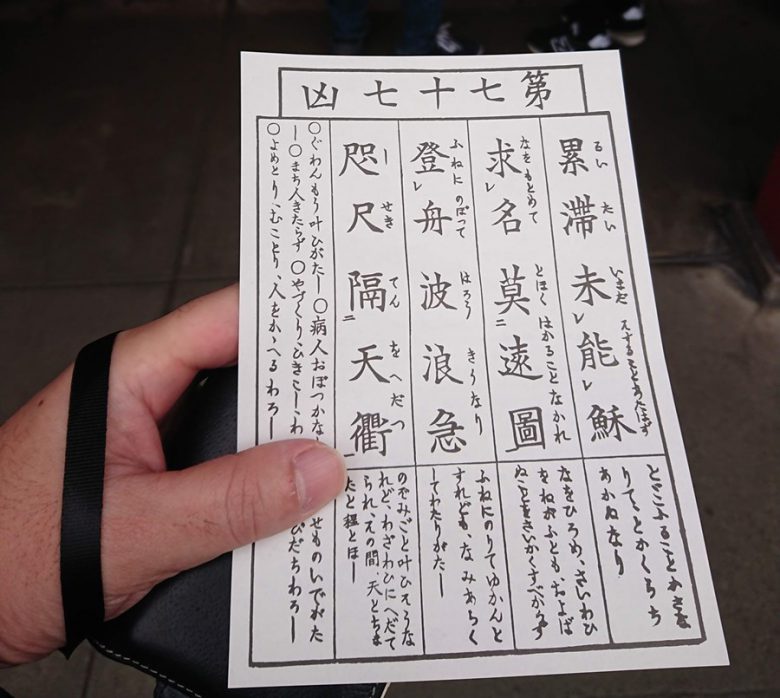 第七十七凶
累滞未レ能レ穌
るい たい いまだ そすることあたはず
とどこふることかさな
りて、とかくらち
あかぬなり
求レ名莫二遠圖一
なをもとめて とほく はかることなかれ
なをひろめ、さいわひ
をねがふとも、およば
ぬことをさいかくすべからず
登レ舟波浪急
ふねに のぼつて はろう きうなり
ふねにのりてゆかんと
すれども、なみあらく
してわたりがたし
咫尺隔二天衢一
し せき てん をへだつ
のぞみごと叶ひそうな
れど、わざわひにへだて
られ、その間、天とちま
たと程とほし
〇ぐわんもう叶ひがたし〇病人おぼつかなし せものいでがた
し〇まち人きたらず〇やづくり、ひきこし、わ びだちわろし
〇よめとり、むことり、人をかゝへるわろし